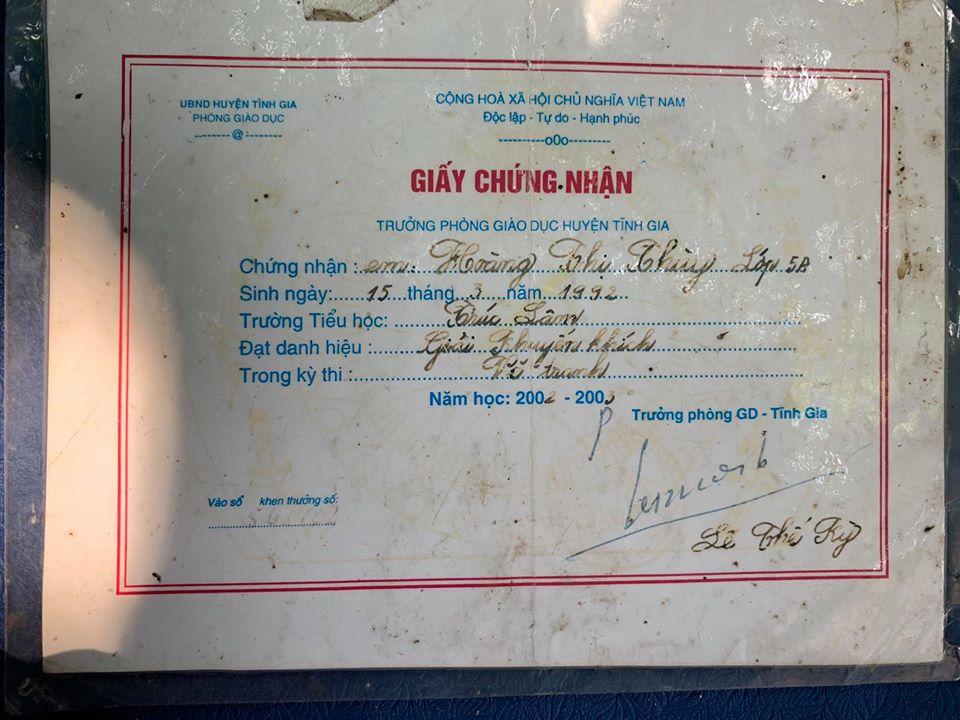 UBND HUYỆN TĨNH GIA
PHÒNG GIÁO DỤC
--------@--------
CỘNG HOÀ XÃ HỘI CHỦ NGHĨA VIỆT NAM
Độc lập - Tự do - Hạnh phúc
----------o0o---------
GIẤY CHỨNG NHẬN
TRƯỞNG PHÒNG GIÁO DỤC HUYỆN TĨNH GIA
Chứng nhận : em: Hoàng Thị Thùy Lớp 5A
Sinh ngày: 15 tháng 3 năm 1992
Trường Tiểu học: Trúc Lâm
Đạt danh hiệu : Giải Khuyến khích
Trong kỳ thi : Vẽ tranh
Năm học: 200 - 200
Trưởng phòng GD - Tĩnh Gia
Lê Thế Kỷ
Vào sổ khen thưởng số: